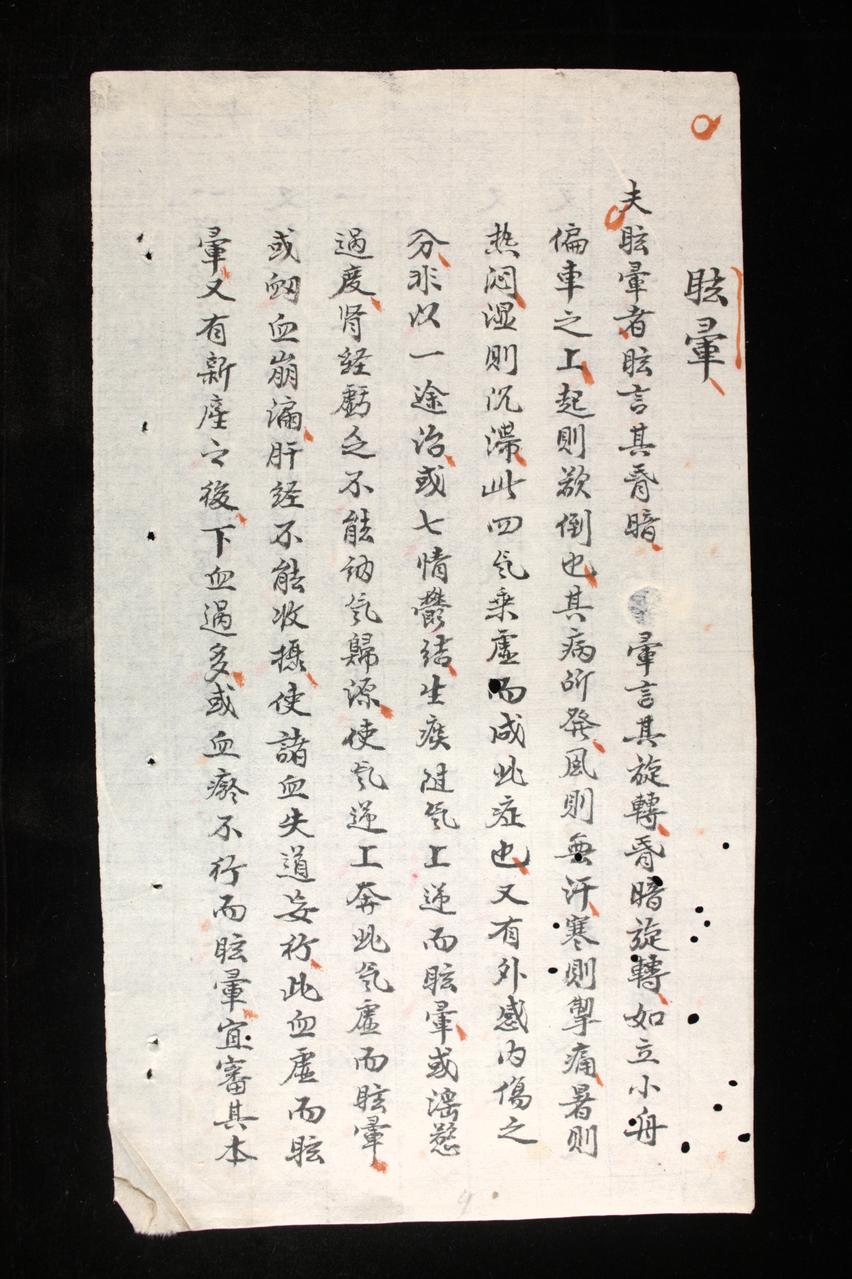 眩暈
夫眩暈者眩言其昏暗 暈言其旋轉昏暗旋轉如立小舟
偏車之上起則欲倒也其病所發風則無汗寒則掣痛暑則
热闷湿則沉滞此四気乗虚而成此症也又有外感内傷之
分非以一途治或七情欝結生痰随気上逆而眩暈或滛慾
過度肾経虧乏不能納気歸源使気逆上奔此気虚而眩暈
或衂血崩漏肝経不能收攝使諸血失道妄行此血虚而眩
暈又有新産之後下血過多或血瘀不行而眩暈宜審其本